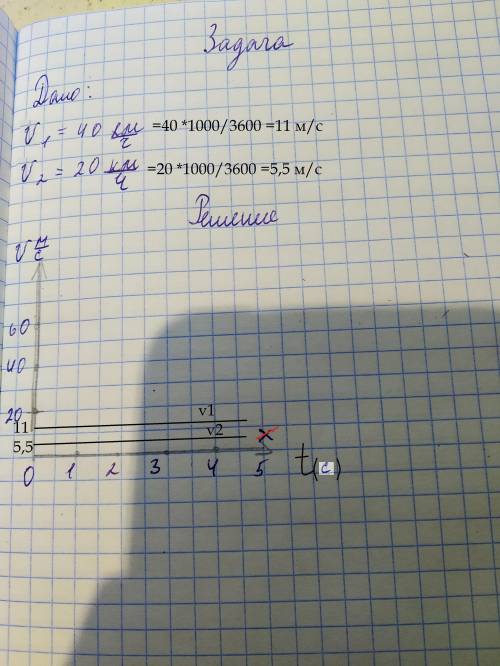 Задача
Дано:
V1 = 40 км/ч =40 *1000/3600 =11 м/с
V2 = 20 км/ч =20 *1000/3600 =5,5 м/с
Решение
V м/с
60
40
20
v1
11
v2 x
5,5
0 1 2 3 4 5 t(с)